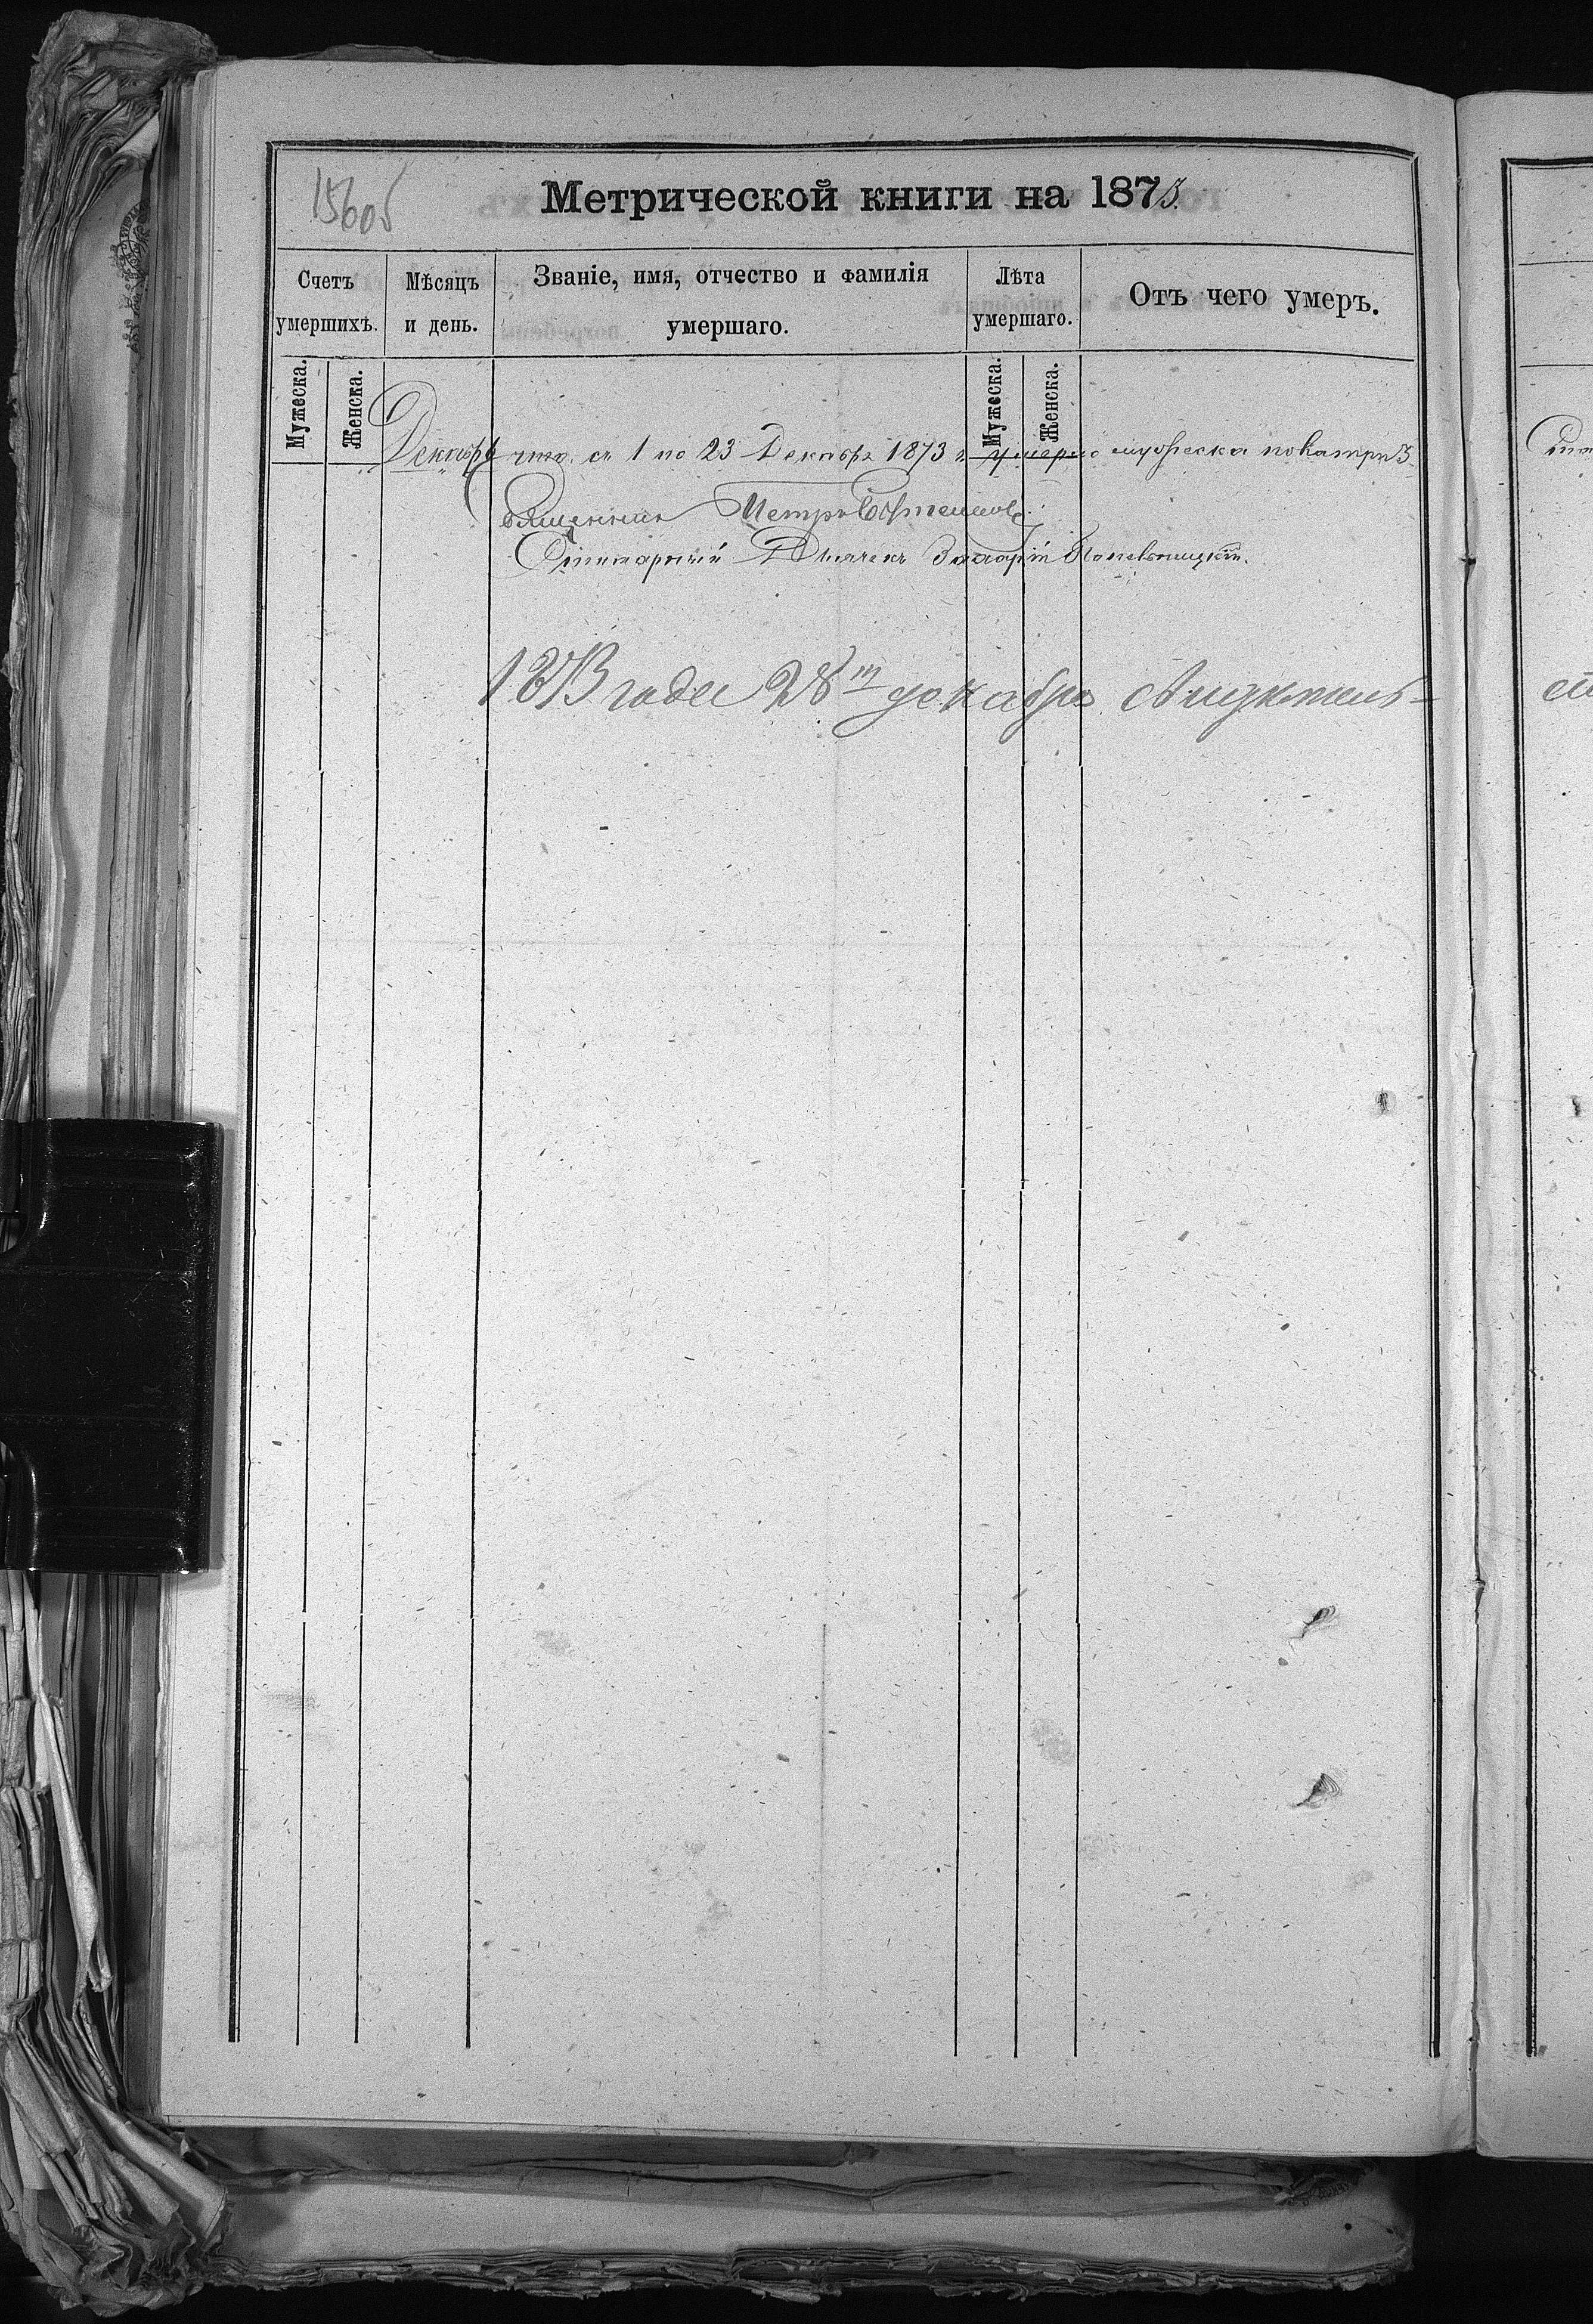 15605
Метрической книги на 1873.
Счетъ умершихъ.
Мѣсяцъ и день.
Званіе, имя, отчество и фамилія умершаго.
Лѣта умершаго.
Отъ чего умеръ.
Мужеска.
Женска.
Мужеска.
Женска.
Декабрь что съ 1 по 23 Декабря 1873 г. умерло мужеска пола три 3
Священник Петръ
Дьячекъ Захарій
1873 года 28 декабря Свидѣтель-